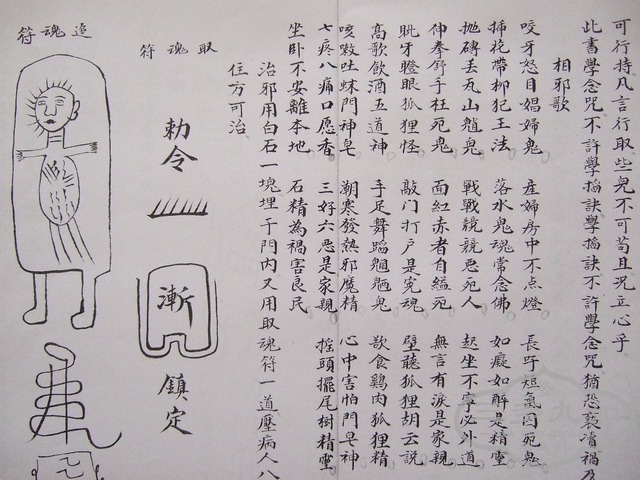 可行持凡言行取些鬼不可苟且況立心乎
此書學念咒不許學搯訣學搯訣不許學念咒猶恐褻瀆禍乃
相邪歌
咬牙怒目娼婦鬼 產婦房中不点燈 長吁短氣囚冤鬼
帶柳犯王法 落水鬼魂常念佛 如癡如醉是精靈
抛磚丟瓦山魈鬼 戰戰兢兢惡死人 起坐不寧必外道
伸拳舒手枉死鬼 面紅赤者自縊死 無言有淚是家親
牙瞪眼狐狸怪 敲门打户是冤魂 壁聽狐狸胡云説
高歌飲酒五道神 手足舞蹈魍魎鬼 欲食鷄肉狐狸精
咳嗽吐蛛門神皂 潮寒發熱邪魔精 心中害怕門皂神
七疼八痛口愿香 三好六惡是家親 摇頭擺尾樹精靈
坐卧不安離本地 石精為禍害良民
治邪用白石一塊埋于門内又用取魂符一道壓病人八
住方可治
取魂符
勅令
漸
鎮定
追魂符